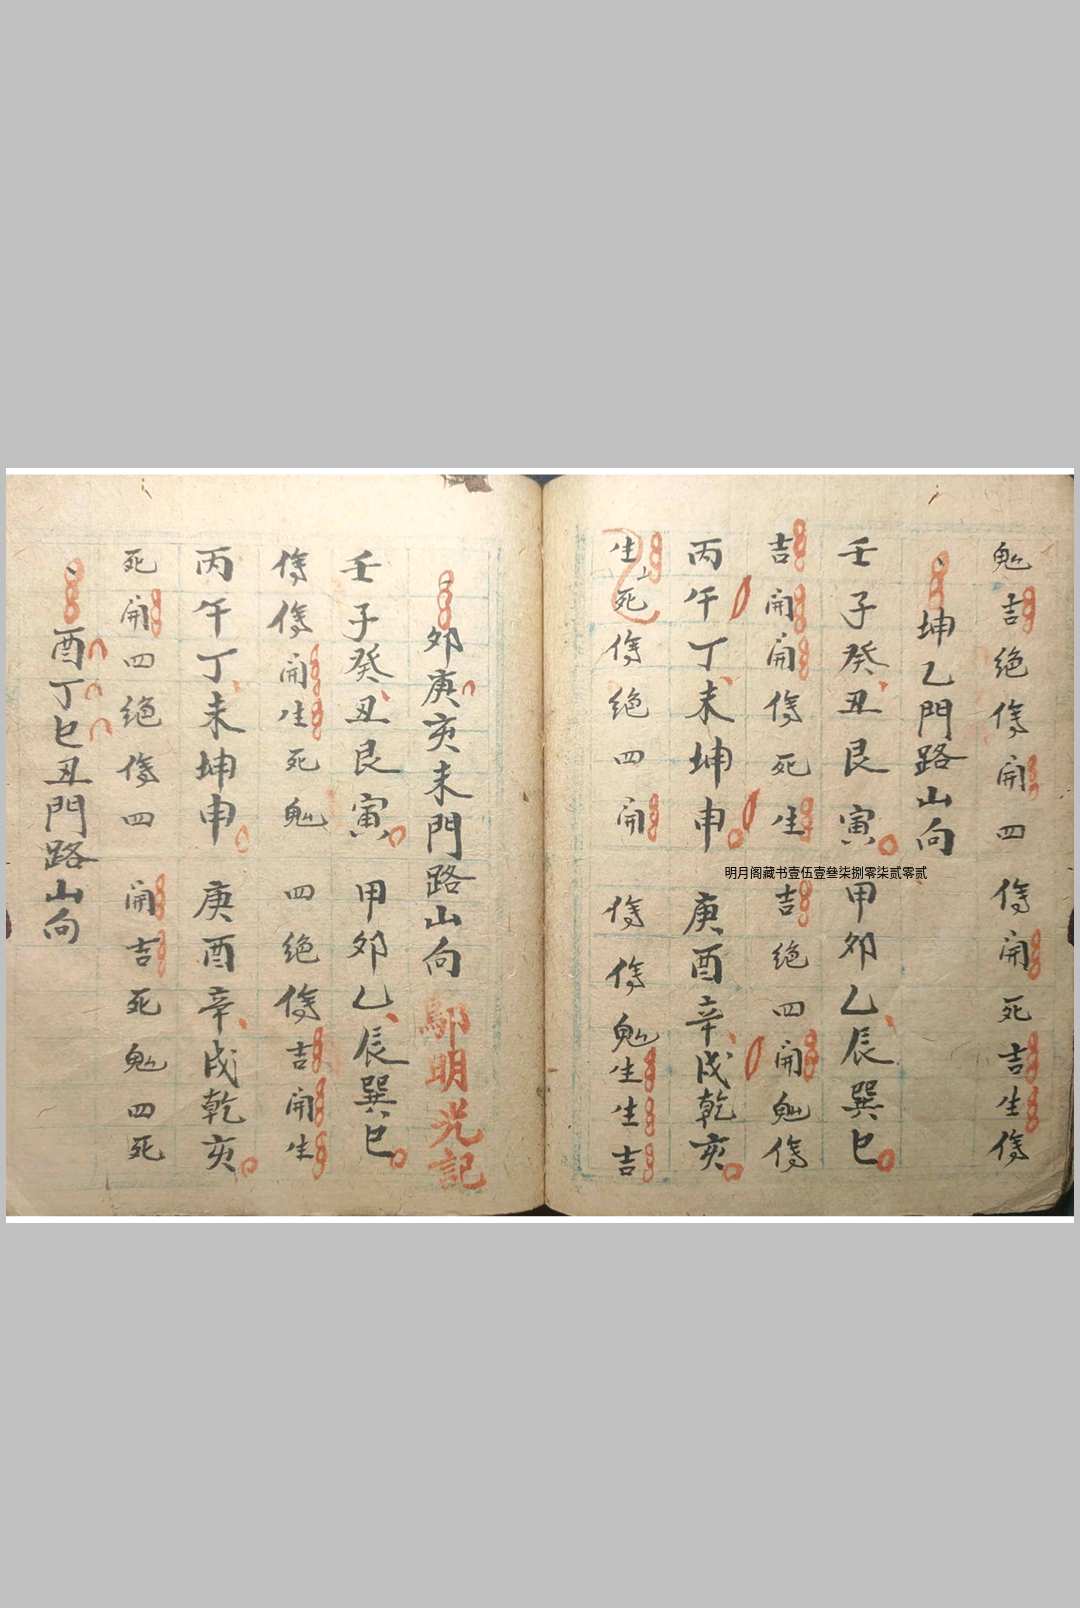 鬼吉绝傷開四傷開死吉生傷
坤乙門路山向
壬子癸丑艮寅甲卯乙辰巽巳
吉開開傷死生吉绝四開鬼傷
丙午丁未坤申庚酉辛戌乾亥
生死傷绝四開傷傷鬼生生吉
卯庚亥未門路山向
鄔明光記
壬子癸丑艮寅甲卯乙辰巽巳
傷傷開生死鬼四绝傷吉開生
丙午丁未坤申庚酉辛戌乾亥
死開四绝傷四開吉死鬼四死
酉丁巳丑門路山向
明月阁藏书壹伍壹叁柒捌零柒贰零贰